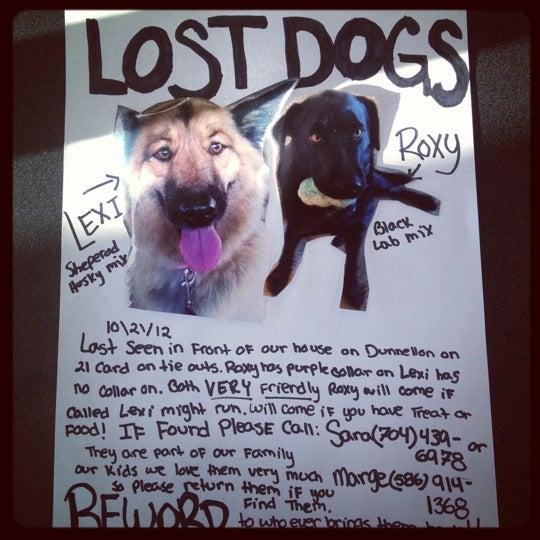 LOST DOGS
LEXI
Sheperad
Husky mix
ROXY
Black
Lab mix
10/21/12
Last Seen in Front of our house on Dunnellon on
21 Card on tie outs. Roxy has purple collar on Lexi has
no collar on. Both VERY Friendly Roxy will come if
called Lexi might run. Will come if you have Treat or
Food! IF Found Please Call: Sara (704) 439-
6978 or
They are part of our Family
our Kids we love them very much Marge (586) 914-
1368
so Please return them if you
Find Them.
REWORD to who ever brings them